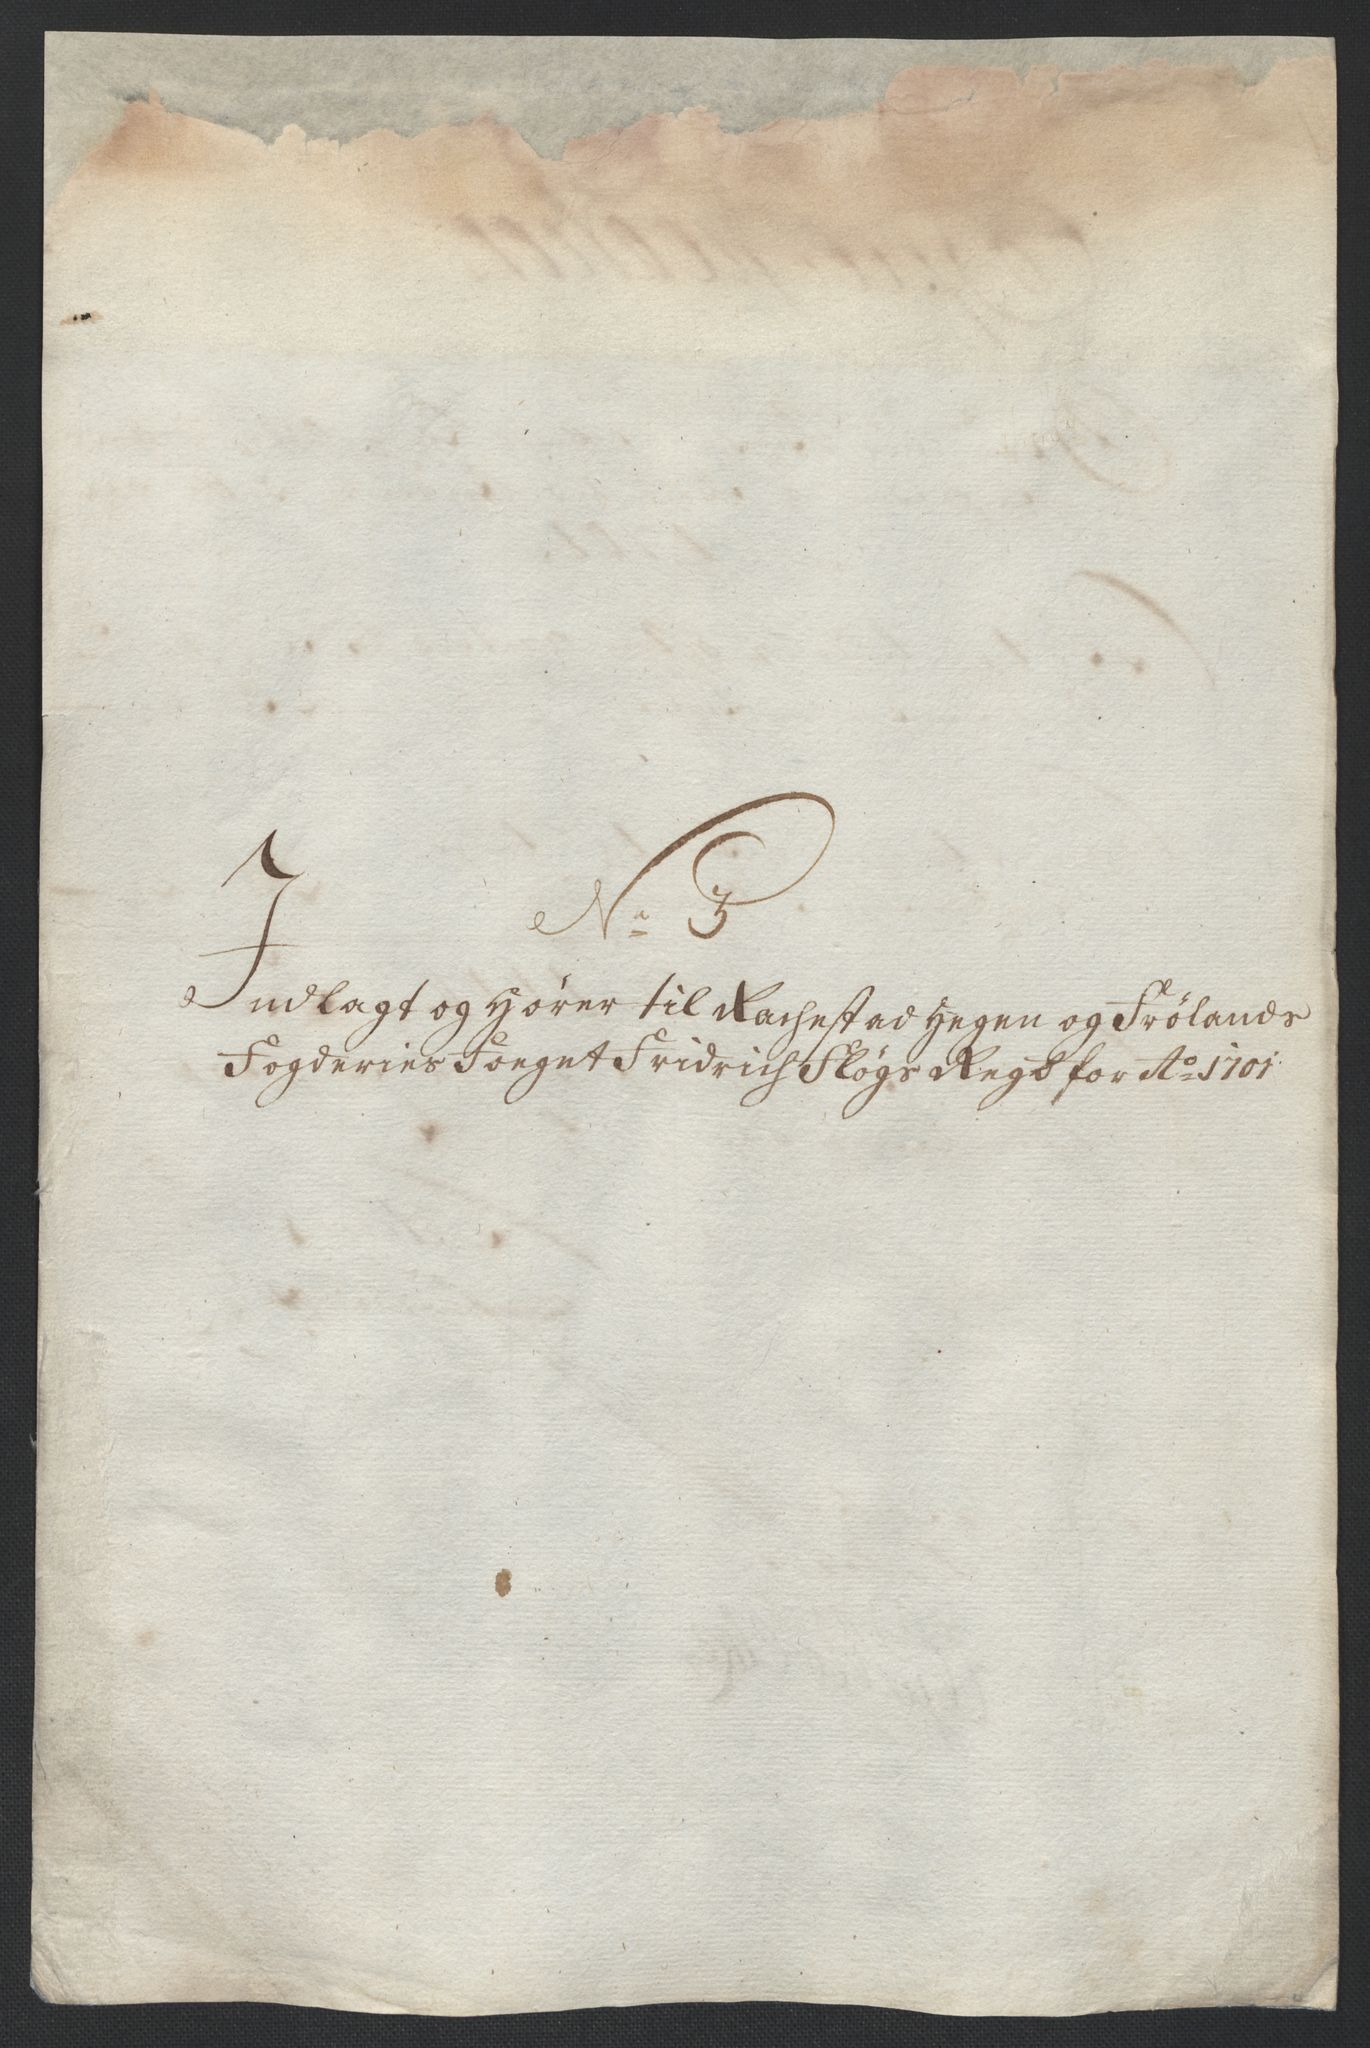 No 3
Indlagt og hører til Rachestad Hegen og Frølands
Fogderies Foeget Fridrich Fløgs Regb for Ao 1701